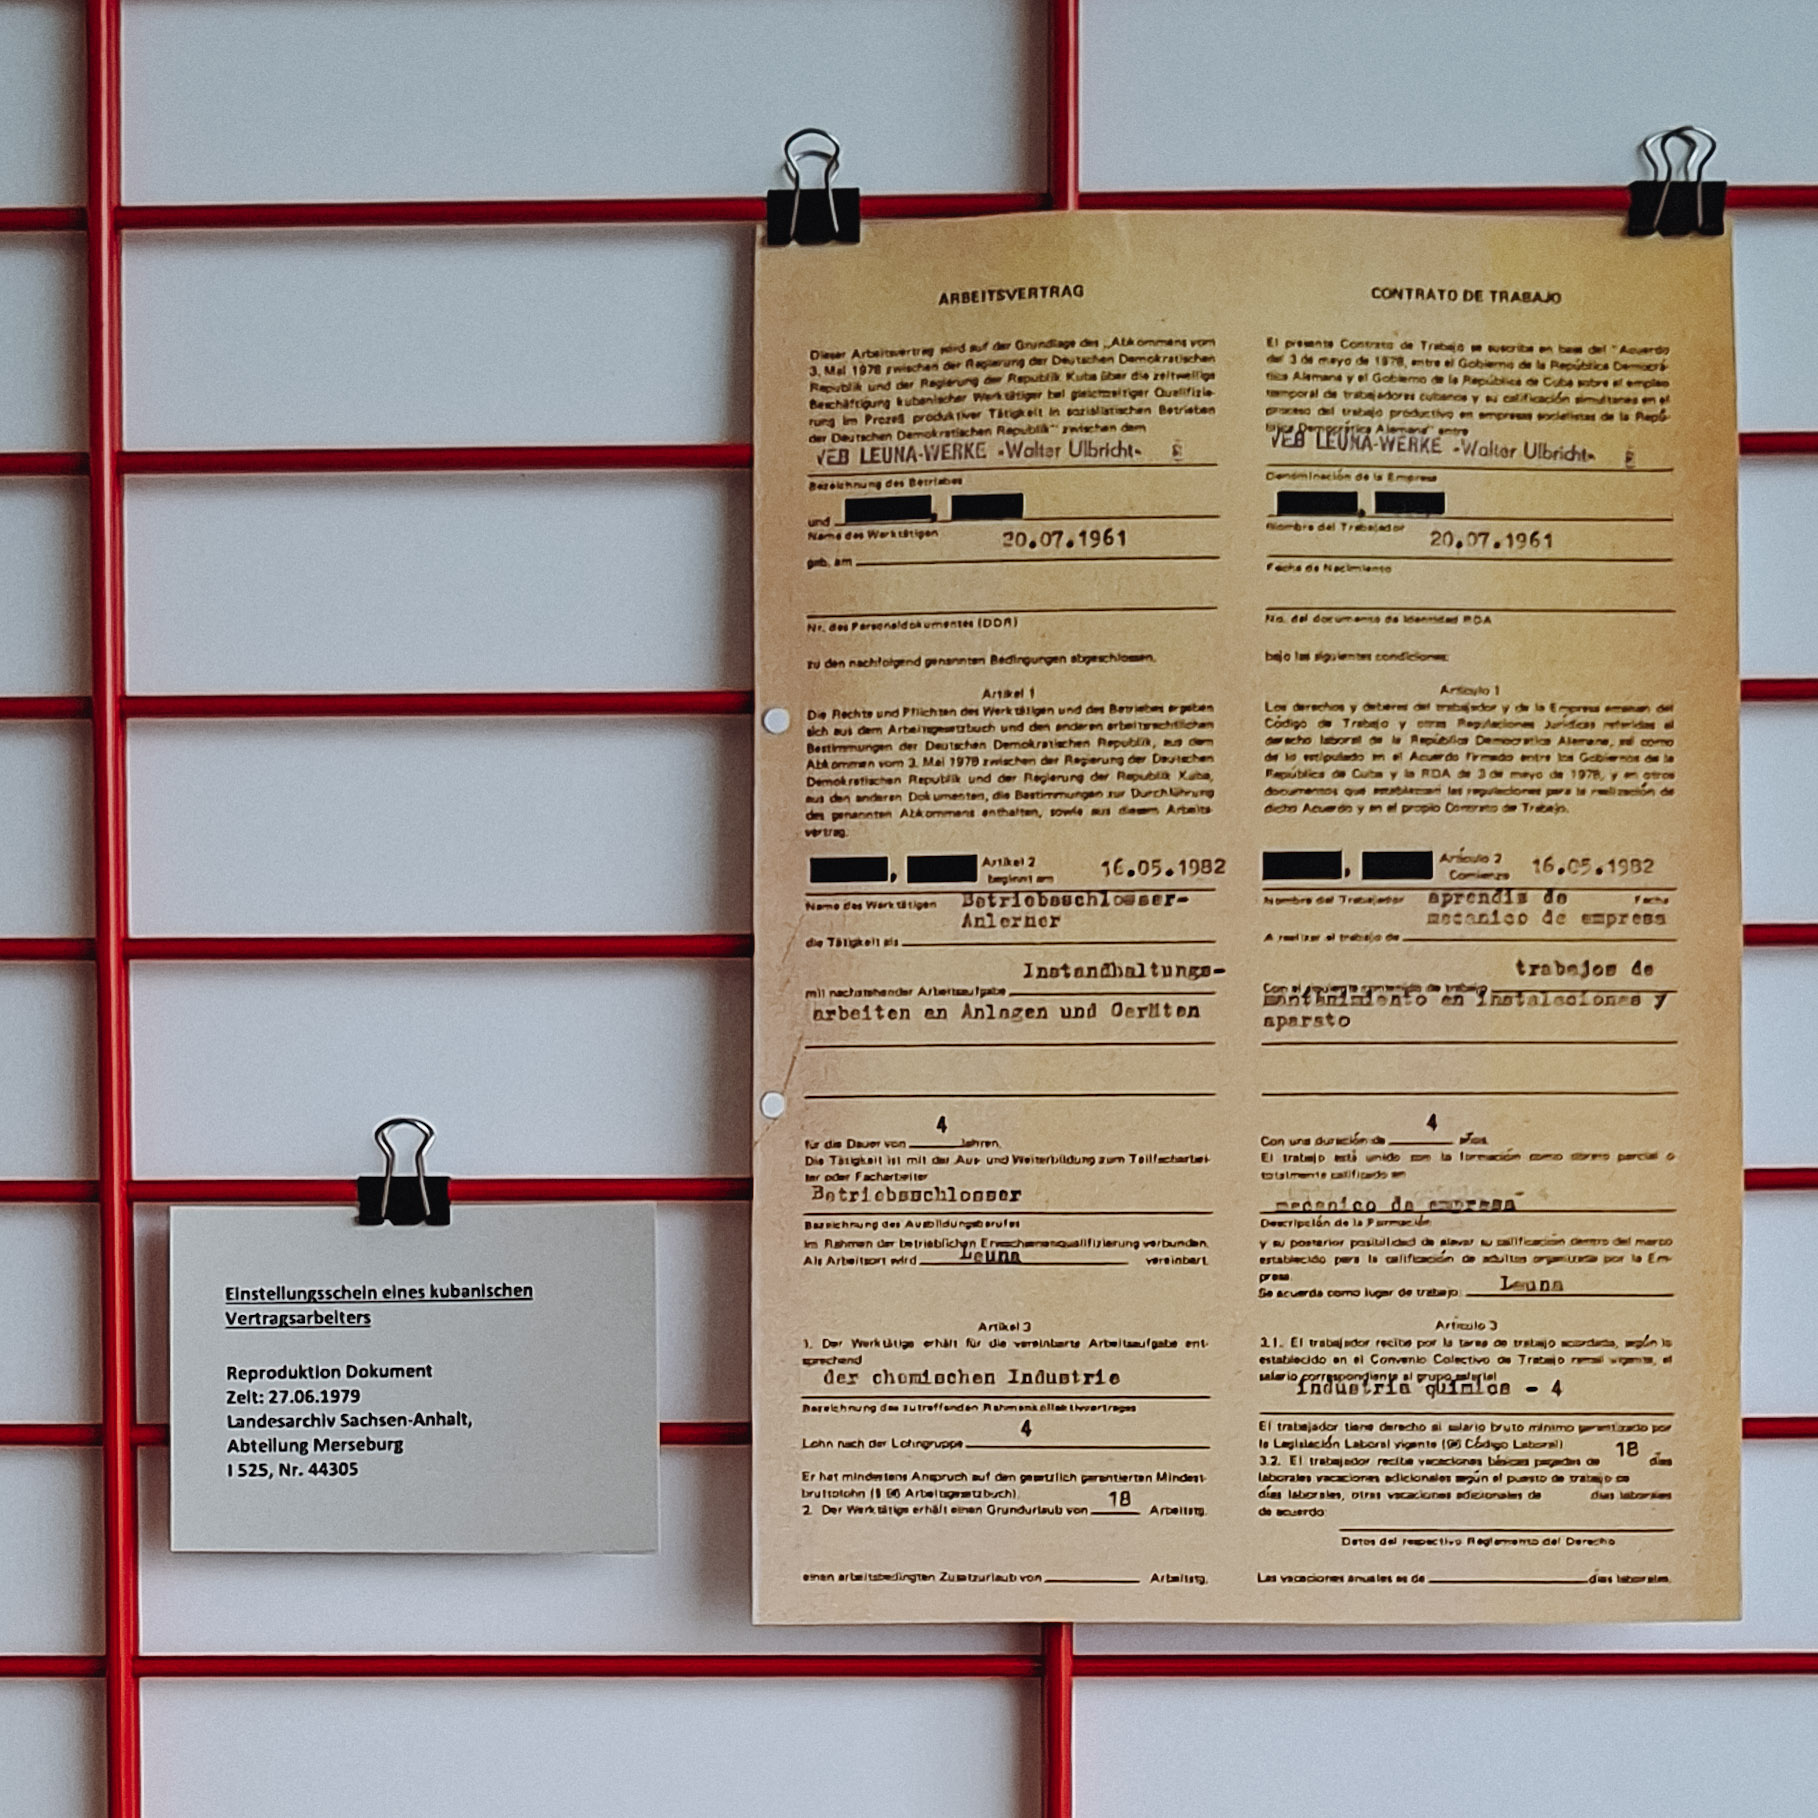 Einstellungsschein eines kubanischen
Vertragsarbeiters
Reproduktion Dokument
Zeit: 27.06.1979
Landesarchiv Sachsen-Anhalt,
Abteilung Merseburg
I 525, Nr. 44305
ARBEITSVERTRAG
Dieser Arbeitsvertrag wird auf der Grundlage des „Abkommens vom
3. Mai 1978 zwischen der Regierung der Deutschen Demokratischen
Republik und der Regierung der Republik Kuba über die zeitweilige
Beschäftigung kubanischer Werktätiger bei gleichzeitiger Qualifizie-
rung im Prozeß produktiver Tätigkeit in sozialistischen Betrieben
der Deutschen Demokratischen Republik" zwischen dem
VEB LEUNA-WERKE -Walter Ulbricht-
Bezeichnung des Betriebes
und
Name des Werktätigen
20.07.1961
geb. am
Nr. des Personaldokumentes (DDR)
zu den nachfolgend genannten Bedingungen abgeschlossen.
Artikel 1
Die Rechte und Pflichten des Werktätigen und des Betriebes ergeben
sich aus dem Arbeitsgesetzbuch und den anderen arbeitsrechtlichen
Bestimmungen der Deutschen Demokratischen Republik, aus dem
Abkommen vom 3. Mai 1978 zwischen der Regierung der Deutschen
Demokratischen Republik und der Regierung der Republik Kuba,
aus den anderen Dokumenten, die Bestimmungen zur Durchführung
des genannten Abkommens enthalten, sowie aus diesem Arbeits-
vertrag.
, Artikel 2 16.05.1982
beginnt am
Name des Werktätigen Betriebsschlosser-
Anlerner
die Tätigkeit als
Instandhaltungs-
mit nachstehender Arbeitsaufgabe
arbeiten an Anlagen und Geräten
4
für die Dauer von Jahren.
Die Tätigkeit ist mit der Aus- und Weiterbildung zum Teilfacharbei-
ter oder Facharbeiter
Betriebsschlosser
Bezeichnung des Ausbildungsberufes
im Rahmen der betrieblichen Erwachsenenqualifizierung verbunden.
Als Arbeitsort wird Leuna vereinbart.
Artikel 3
1. Der Werktätige erhält für die vereinbarte Arbeitsaufgabe ent-
sprechend
der chemischen Industrie
Bezeichnung des zutreffenden Rahmenkollektivvertrages
4
Lohn nach der Lohngruppe
Er hat mindestens Anspruch auf den gesetzlich garantierten Mindest-
bruttolohn (§ 96 Arbeitsgesetzbuch).
2. Der Werktätige erhält einen Grundurlaub von 18 Arbeitstg.
einen arbeitsbedingten Zusatzurlaub von Arbeitstg.
CONTRATO DE TRABAJO
El presente Contrato de Trabajo se suscribe en base del "Acuerdo
del 3 de mayo de 1978, entre el Gobierno de la República Democrá-
tica Alemana y el Gobierno de la República de Cuba sobre el empleo
temporal de trabajadores cubanos y su calificación simultanea en el
proceso del trabajo productivo en empresas socialistas de la Repú-
blica Democrática Alemana" entre
VEB LEUNA-WERKE -Walter Ulbricht-
Denominación de la Empresa
Nombre del Trabajador
20.07.1961
Fecha de Nacimiento
No. del documento de Identidad RDA
bajo las siguientes condiciones:
Artículo 1
Los derechos y deberes del trabajador y de la Empresa emanan del
Código de Trabajo y otras Regulaciones Jurídicas referidas al
derecho laboral de la República Democratica Alemana, así como
de lo estipulado en el Acuerdo firmado entre los Gobiernos de la
República de Cuba y la RDA de 3 de mayo de 1978, y en otros
documentos que establezcan las regulaciones para la realización de
dicho Acuerdo y en el propio Contrato de Trabajo.
, Artículo 2 16.05.1982
Comienza
Nombre del Trabajador aprendis de Fecha
mecanico de empresa
A realizar el trabajo de
trabajos de
Con el siguiente contenido de trabajo
mantenimiento en instalaciones y
aparato
4
Con una duración de años.
El trabajo está unido con la formación como obrero parcial o
totalmente calificado en
mecanico de empresa
Descripción de la Formación
y su posterior posibilidad de elevar su calificación dentro del marco
establecido para la calificación de adultos organizada por la Em-
presa.
Se acuerda como lugar de trabajo: Leuna
Artículo 3
3.1. El trabajador recibe por la tarea de trabajo acordada, según lo
establecido en el Convenio Colectivo de Trabajo ramal vigente, el
salario correspondiente al grupo salarial
industria quimica - 4
El trabajador tiene derecho al salario bruto mínimo garantizado por
la Legislación Laboral vigente (96 Código Laboral)
3.2. El trabajador recibe vacaciones básicas pagadas de 18 días
laborales vacaciones adicionales según el puesto de trabajo de
días laborales, otras vacaciones adicionales de días laborales
de acuerdo:
Datos del respectivo Reglamento del Derecho
Las vacaciones anuales es de días laborales.